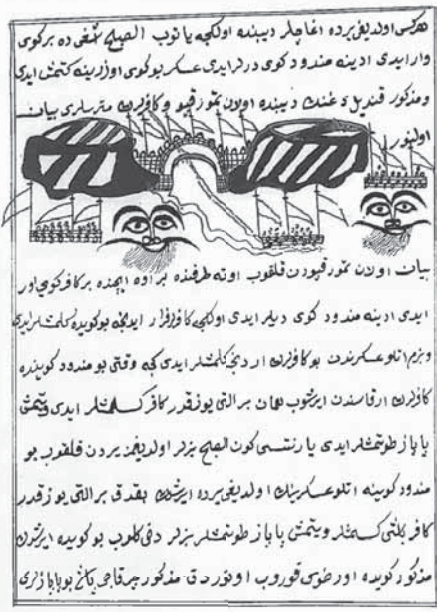 هركس اولديغى يرده اغاچلر ديبنده اولكجه ياتوب الصباح شغى ده بر كوى
وار ايدى ادينه مندود كوى ديرلر ايدى عسكر بو كوى اوزرينه كتمش ايدى
و مذكور قنديل طاغنك ديبنده اولان تمور قپو و كافرلرك متريسلرى بيان
اولنور
بيان اولان تمور قپودن قلقوب اوته طرفنده بر اوه ايچنده بر كافر كويى وار
ايدى ادينه مندود كوى ديرلر ايدى اولكجه كافرلر فرار ايدوب بو كويده كلمشلر ايدى
و بزم اتلو عسكرندن بو كافرلرك اردنجه كلمشلر ايدى كجه وقتى بو مندود كوينده
كافرلرك ارقاسندن ايرشوب همان بر التى يوز قدر كافر كسمشلر ايدى و يتمش
پاپاز طوتمشلر ايدى يارنتسى كون الصباح بزلر اولديغمز يردن قلقوب بو
مندود كوينه اتلو عسكرينك اولديغى يرده ايرشدك بقدق بر التى يوز قدر
كافر كلهسى كسمشلر و يتمش پاپاز طوتمشلر بزلر دخى كلوب بو كويده ايرشدك
مذكور كويده اوردوى قوروب اوتوردق مذكور بو پاپازلرى